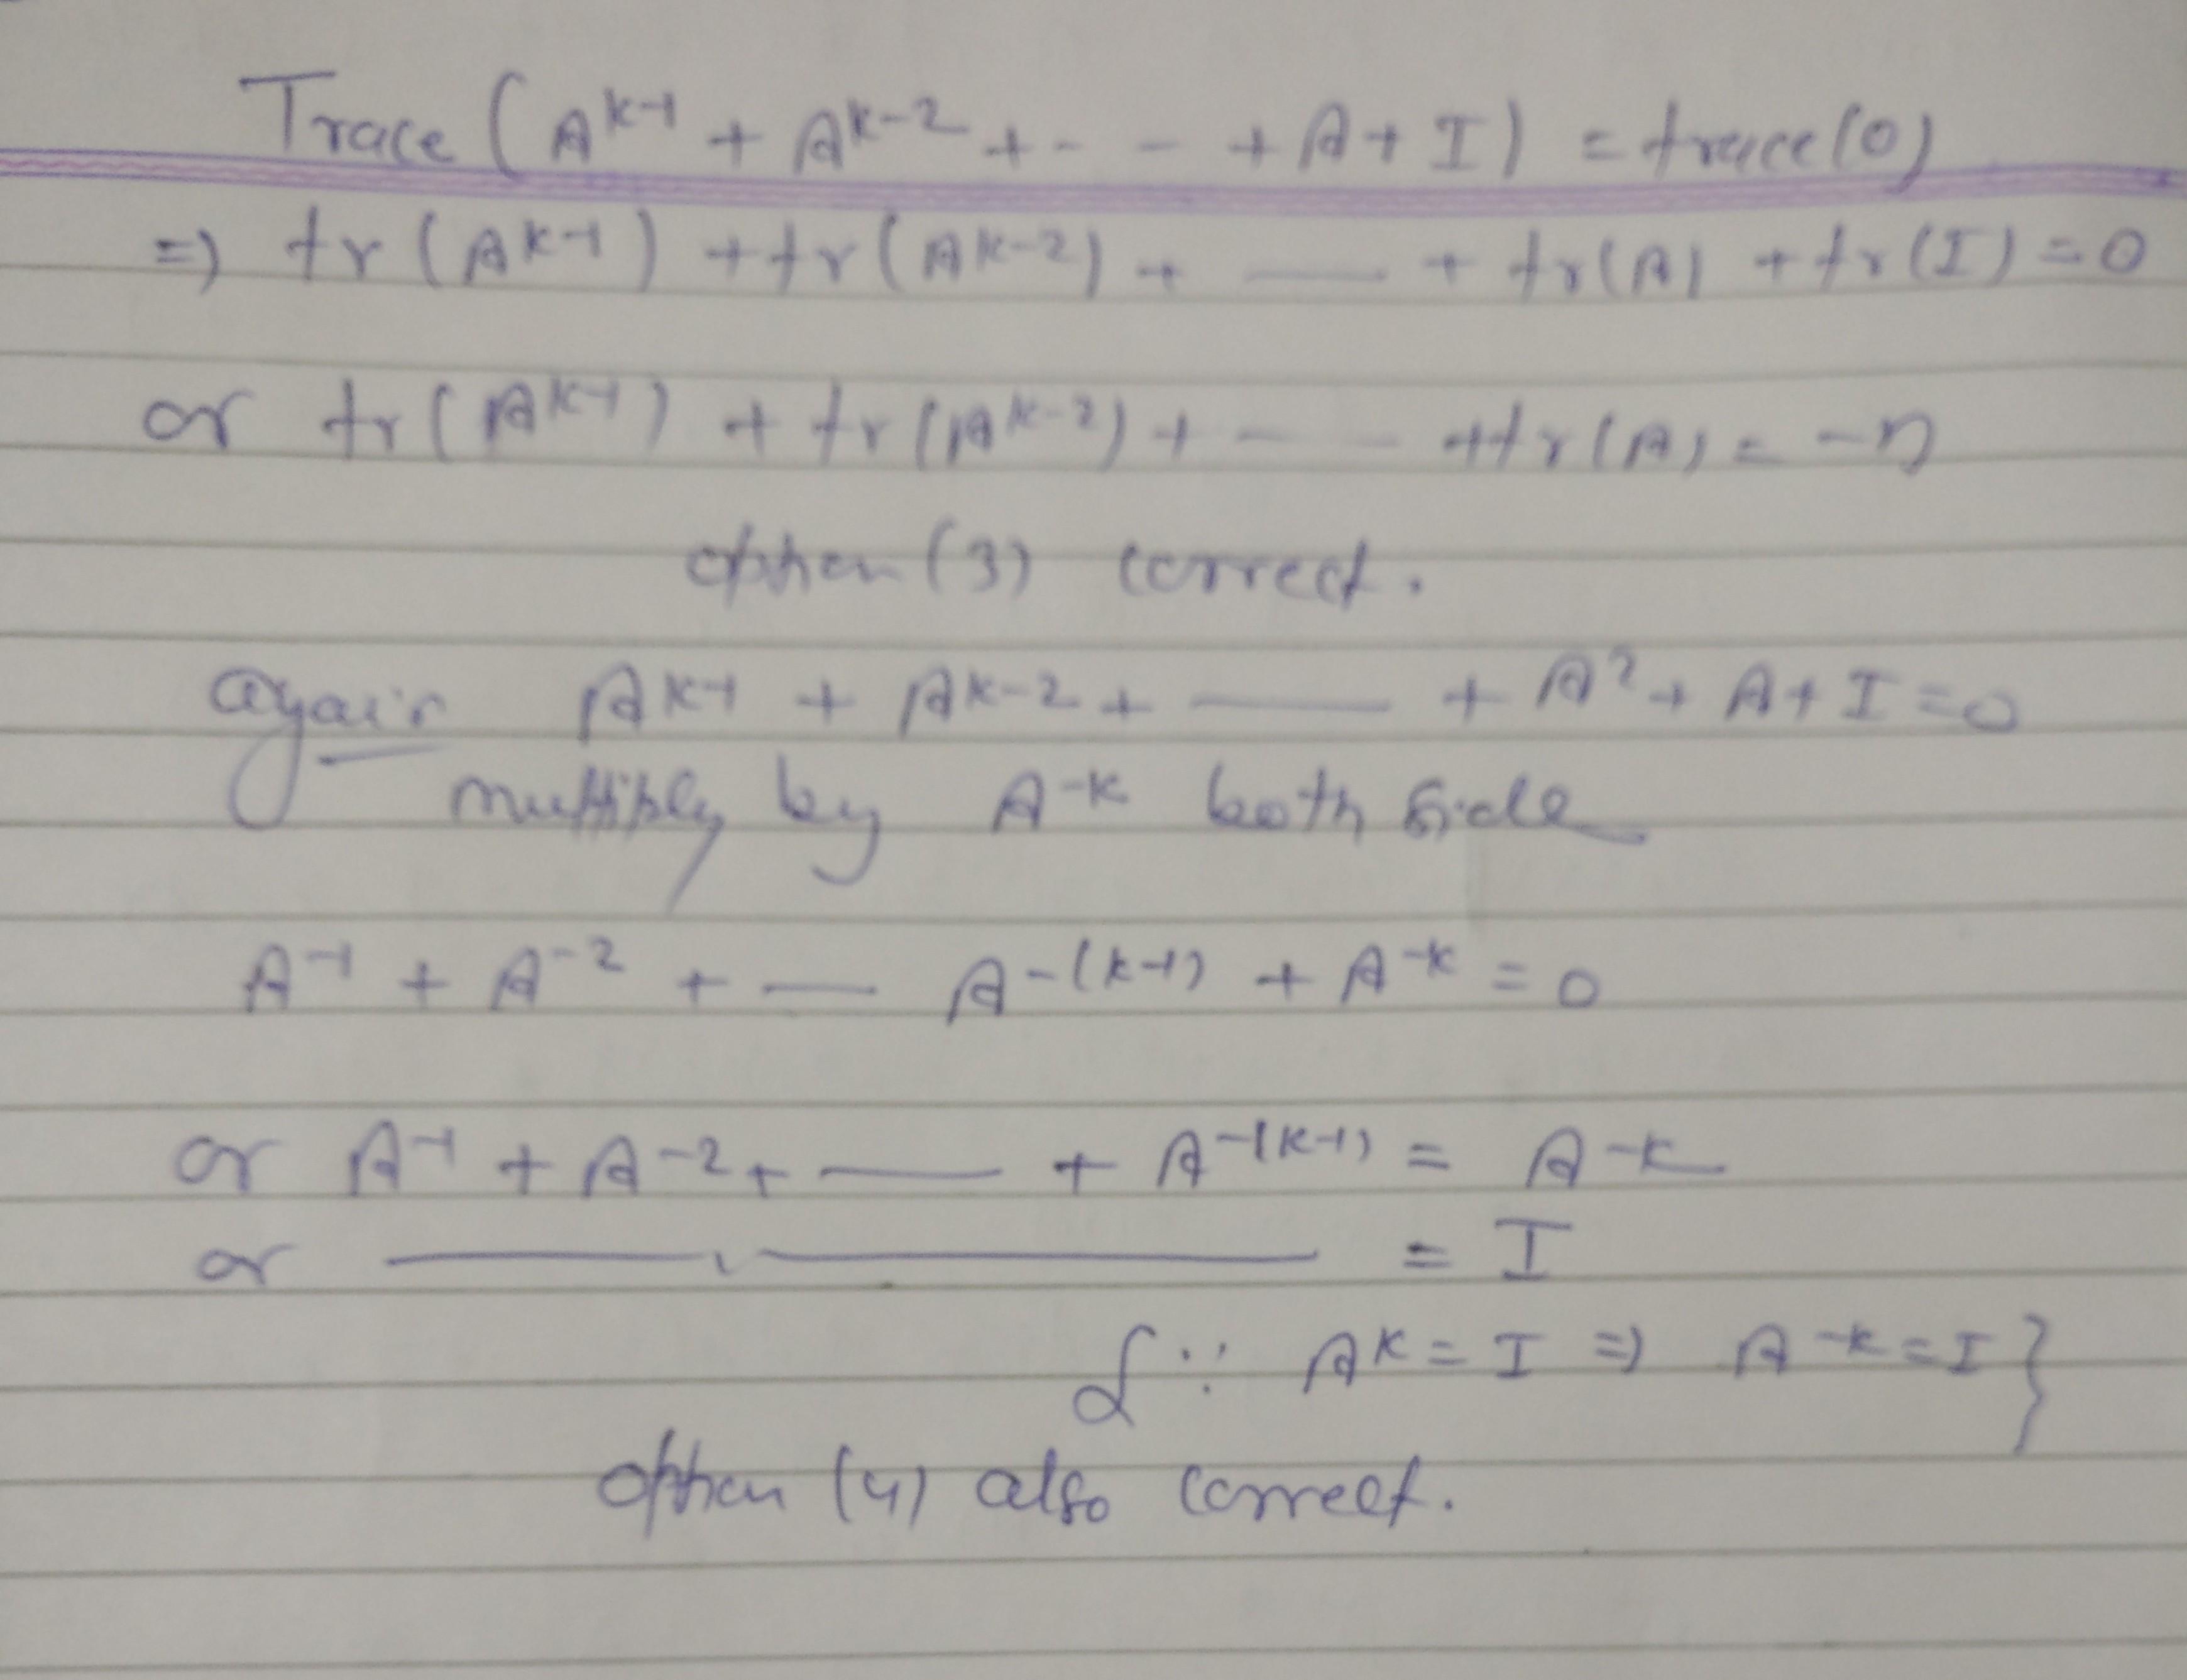 Trace (A^{k-1} + A^{k-2} + - - + A + I) = trace(0)
=) tr(A^{k-1}) + tr(A^{k-2}) + — + tr(A) + tr(I) = 0
or tr(A^{k-1}) + tr(A^{k-2}) + - - + tr(A) = -n
option (3) correct.
again A^{k-1} + A^{k-2} + — + A^2 + A + I = 0
multiply by A^{-k} both side
A^{-1} + A^{-2} + — A^{-(k-1)} + A^{-k} = 0
or A^{-1} + A^{-2} + — + A^{-(k-1)} = A^{-k}
or — , — = I
{∵ A^k = I =) A^{-k} = I}
option (4) also correct.